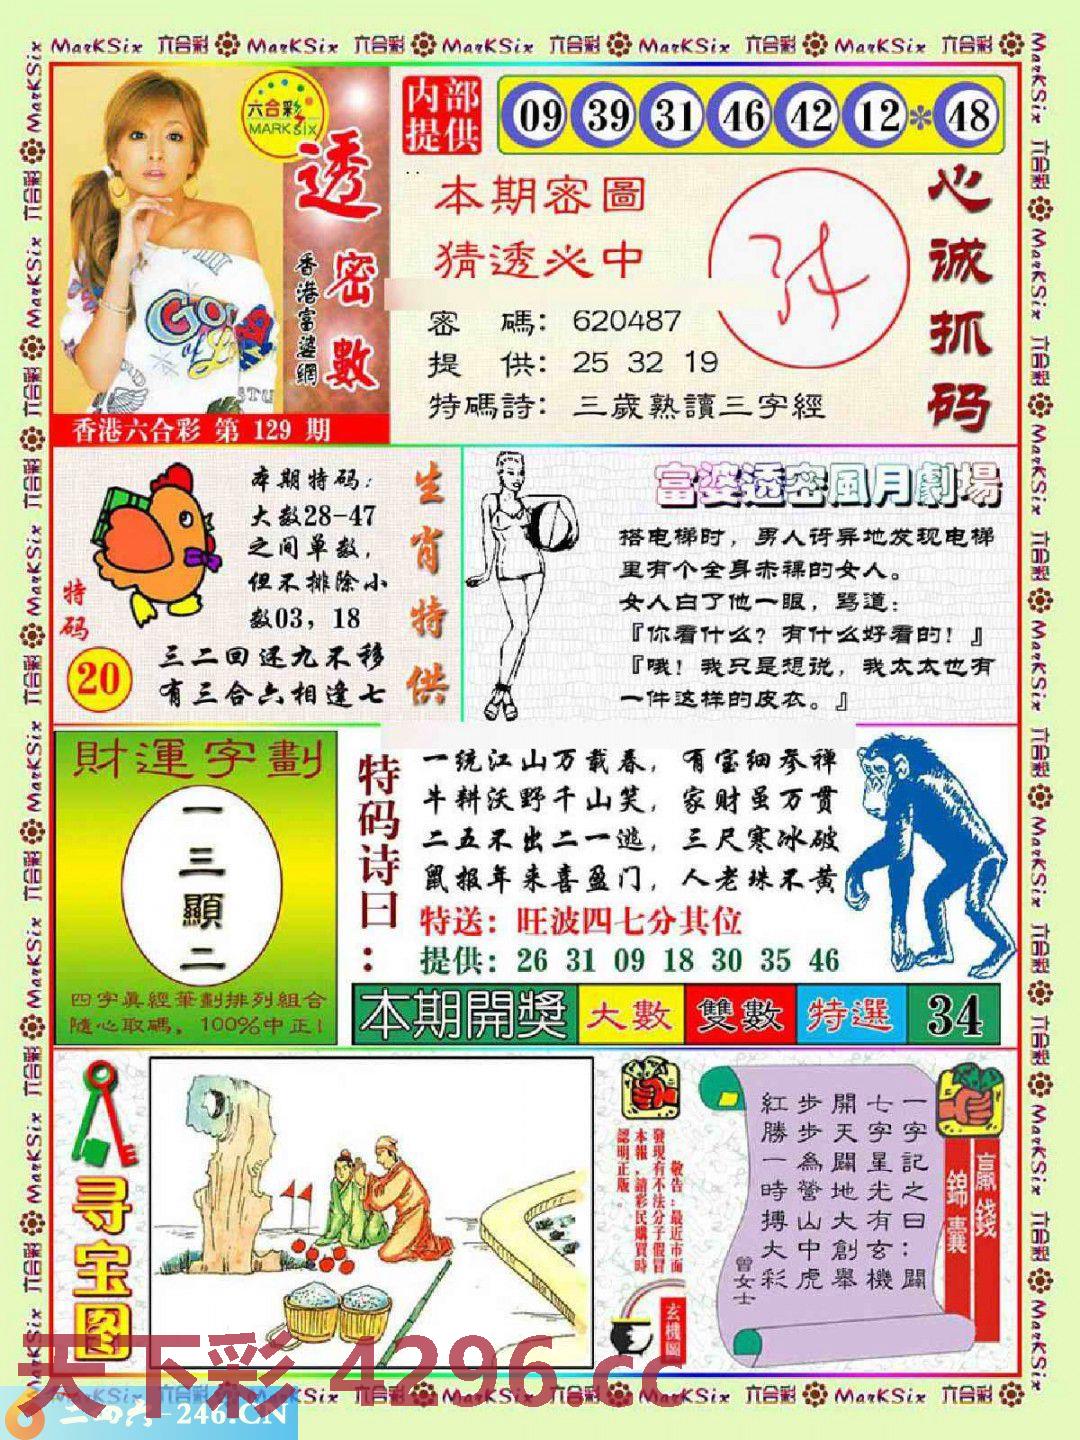 MarKSix 六合彩 MarKSix 六合彩 MarKSix 六合彩 MarKSix 六合彩 MarKSix 六合彩
六合彩
MARK SIX
透密數
香港富婆網
香港六合彩 第 129 期
内部
提供
09 39 31 46 42 12 * 48
本期密圖
猜透必中
密 碼: 620487
提 供: 25 32 19
特碼詩: 三歲熟讀三字經
心诚抓码
本期特码:
大数28-47
之间单数,
但不排除小
数03, 18
特码
20
三二回还九不移
有三合六相逢七
生肖特供
富婆透密風月劇場
搭电梯时，男人讶异地发现电梯
里有个全身赤裸的女人。
女人白了他一眼，骂道：
『你看什么？有什么好看的！』
『哦！我只是想说，我太太也有
一件这样的皮衣。』
財運字劃
一三顯二
四字真經筆劃排列組合
隨心取碼, 100%中正!
特码诗曰:
一统江山万载春，有宝细参禅
牛耕沃野千山笑，家财虽万贯
二五不出二一逃，三尺寒冰破
鼠报年来喜盈门，人老珠不黄
特送: 旺波四七分其位
提供: 26 31 09 18 30 35 46
本期開獎 大數 雙數 特選 34
寻宝图
敬告:最近市面
發現有不法分子假冒
本報,請彩民購買時
認明正版。
玄機圖
贏錢
錦囊
一字記之曰:闢
七字星光有玄機
開天闢地大創舉
步步為營山中虎
紅勝一時搏大彩
曾女士
天下彩 4296.cc
二四六-246.CN
MarKSix 六合彩 MarKSix 六合彩 MarKSix 六合彩 MarKSix 六合彩